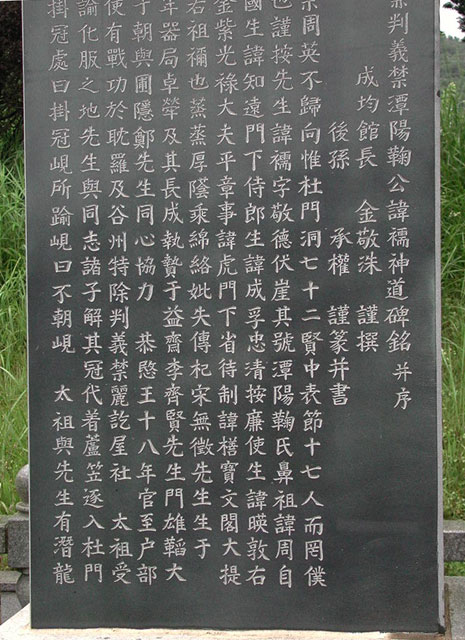 宗判義禁潭陽鞠公諱襦神道碑銘 并序
成均館長 金敬洙 謹撰
後孫 承權 謹篆并書
周英不歸向惟杜門洞七十二賢中表節十七人而罔僕
也謹按先生諱襦字敬德伏崖其號潭陽鞠氏鼻祖諱周自
國生諱知遠門下侍郎生諱成孚忠清按廉使生諱暎敦右
金紫光祿大夫平章事諱虎門下省待制諱樒寶文閣大提
若祖禰也蒸蒸厚蔭乘綿絡妣失傳杞宋無徵先生生于
年器局卓犖及其長成執贄于益齋李齊賢先生門雄韜大
于朝與圃隱鄭先生同心協力 恭愍王十八年官至户部
使有戰功於耽羅及谷州特除判義禁麗訖屋社 太祖受
諭化服之地先生與同志諸子解其冠代着蘆笠逐入杜門
掛冠處曰掛冠峴所踰峴曰不朝峴 太祖與先生有潛龍